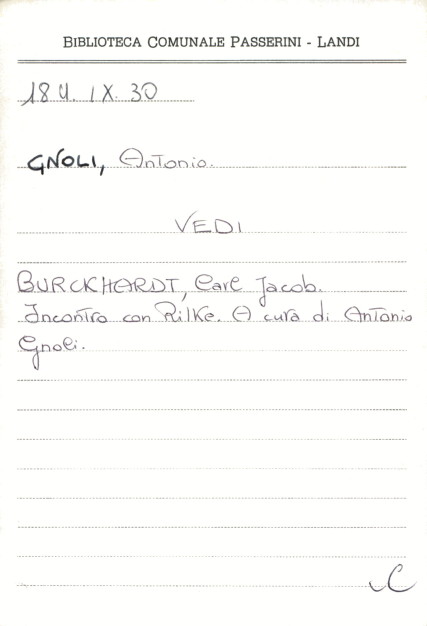 BIBLIOTECA COMUNALE PASSERINI - LANDI
18 U. IX. 30
GNOLI, Antonio.
VEDI
BURCKHARDT, Carl Jacob.
Incontro con Rilke. A cura di Antonio
Gnoli.